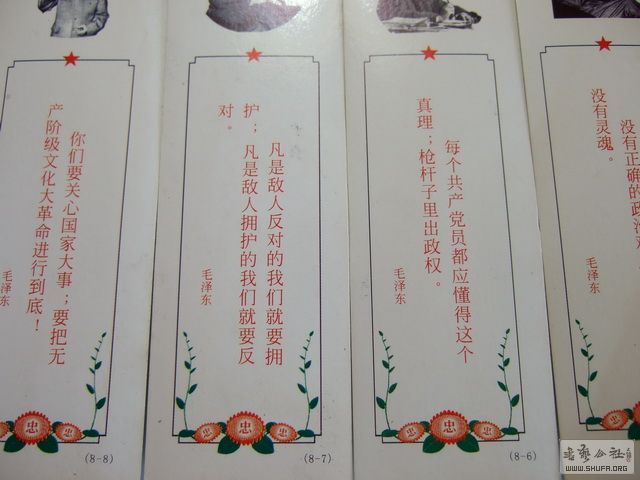 你们要关心国家大事；要把无
产阶级文化大革命进行到底！
毛泽东
忠
忠
(8-8)
凡是敌人反对的我们就要拥
护；凡是敌人拥护的我们就要反
对。
毛泽东
忠
忠
忠
(8-7)
每个共产党员都应懂得这个
真理；枪杆子里出政权。
毛泽东
忠
忠
忠
(8-6)
没有正确的政治
没有灵魂。
毛泽东
忠
WWW.SHUFA.ORG